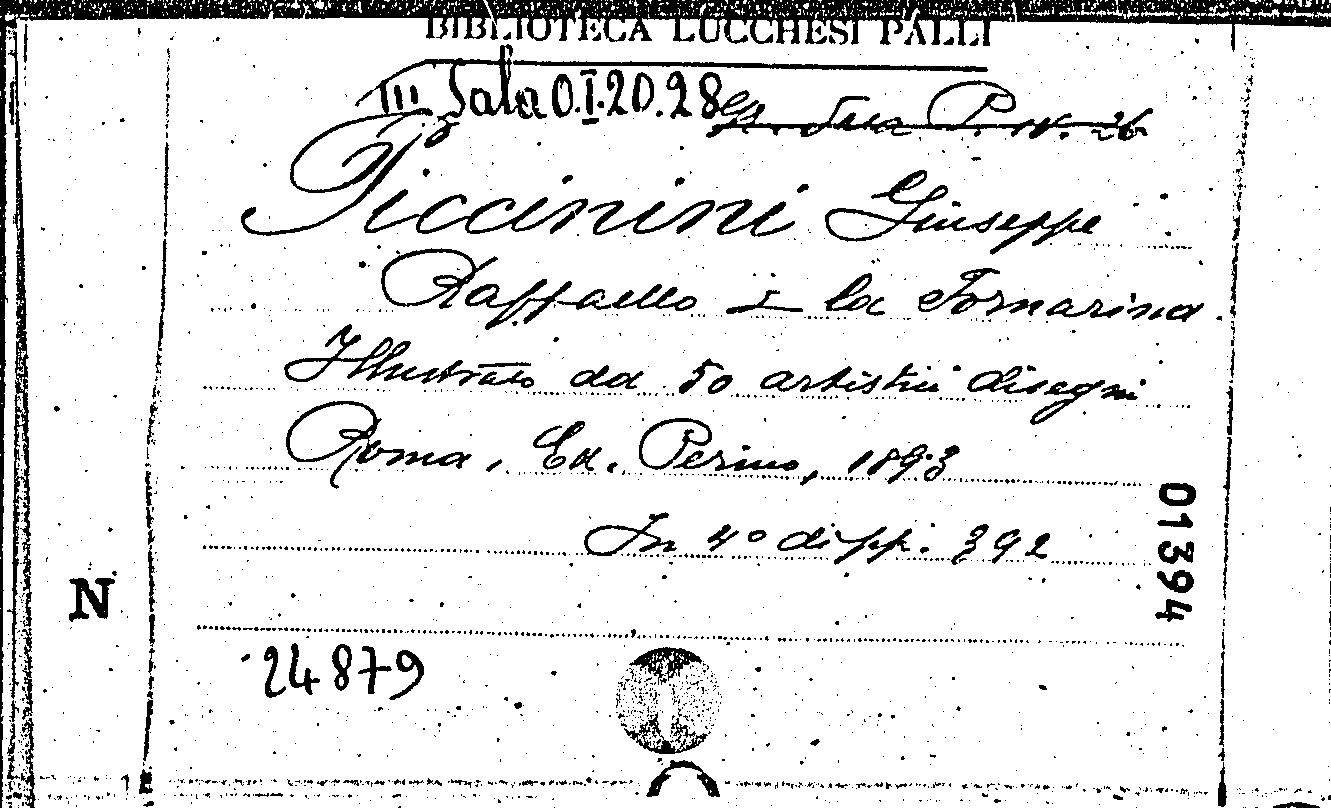 BIBLIOTECA LUCCHESI PALLI
III Sala O.I.20.28
Piccinini Giuseppe
Raffaello e la Fornarina
Illustrato da 50 artistici disegni
Roma, Ed. Perino, 1893
In 4° di pp. 392
01394
N
24879